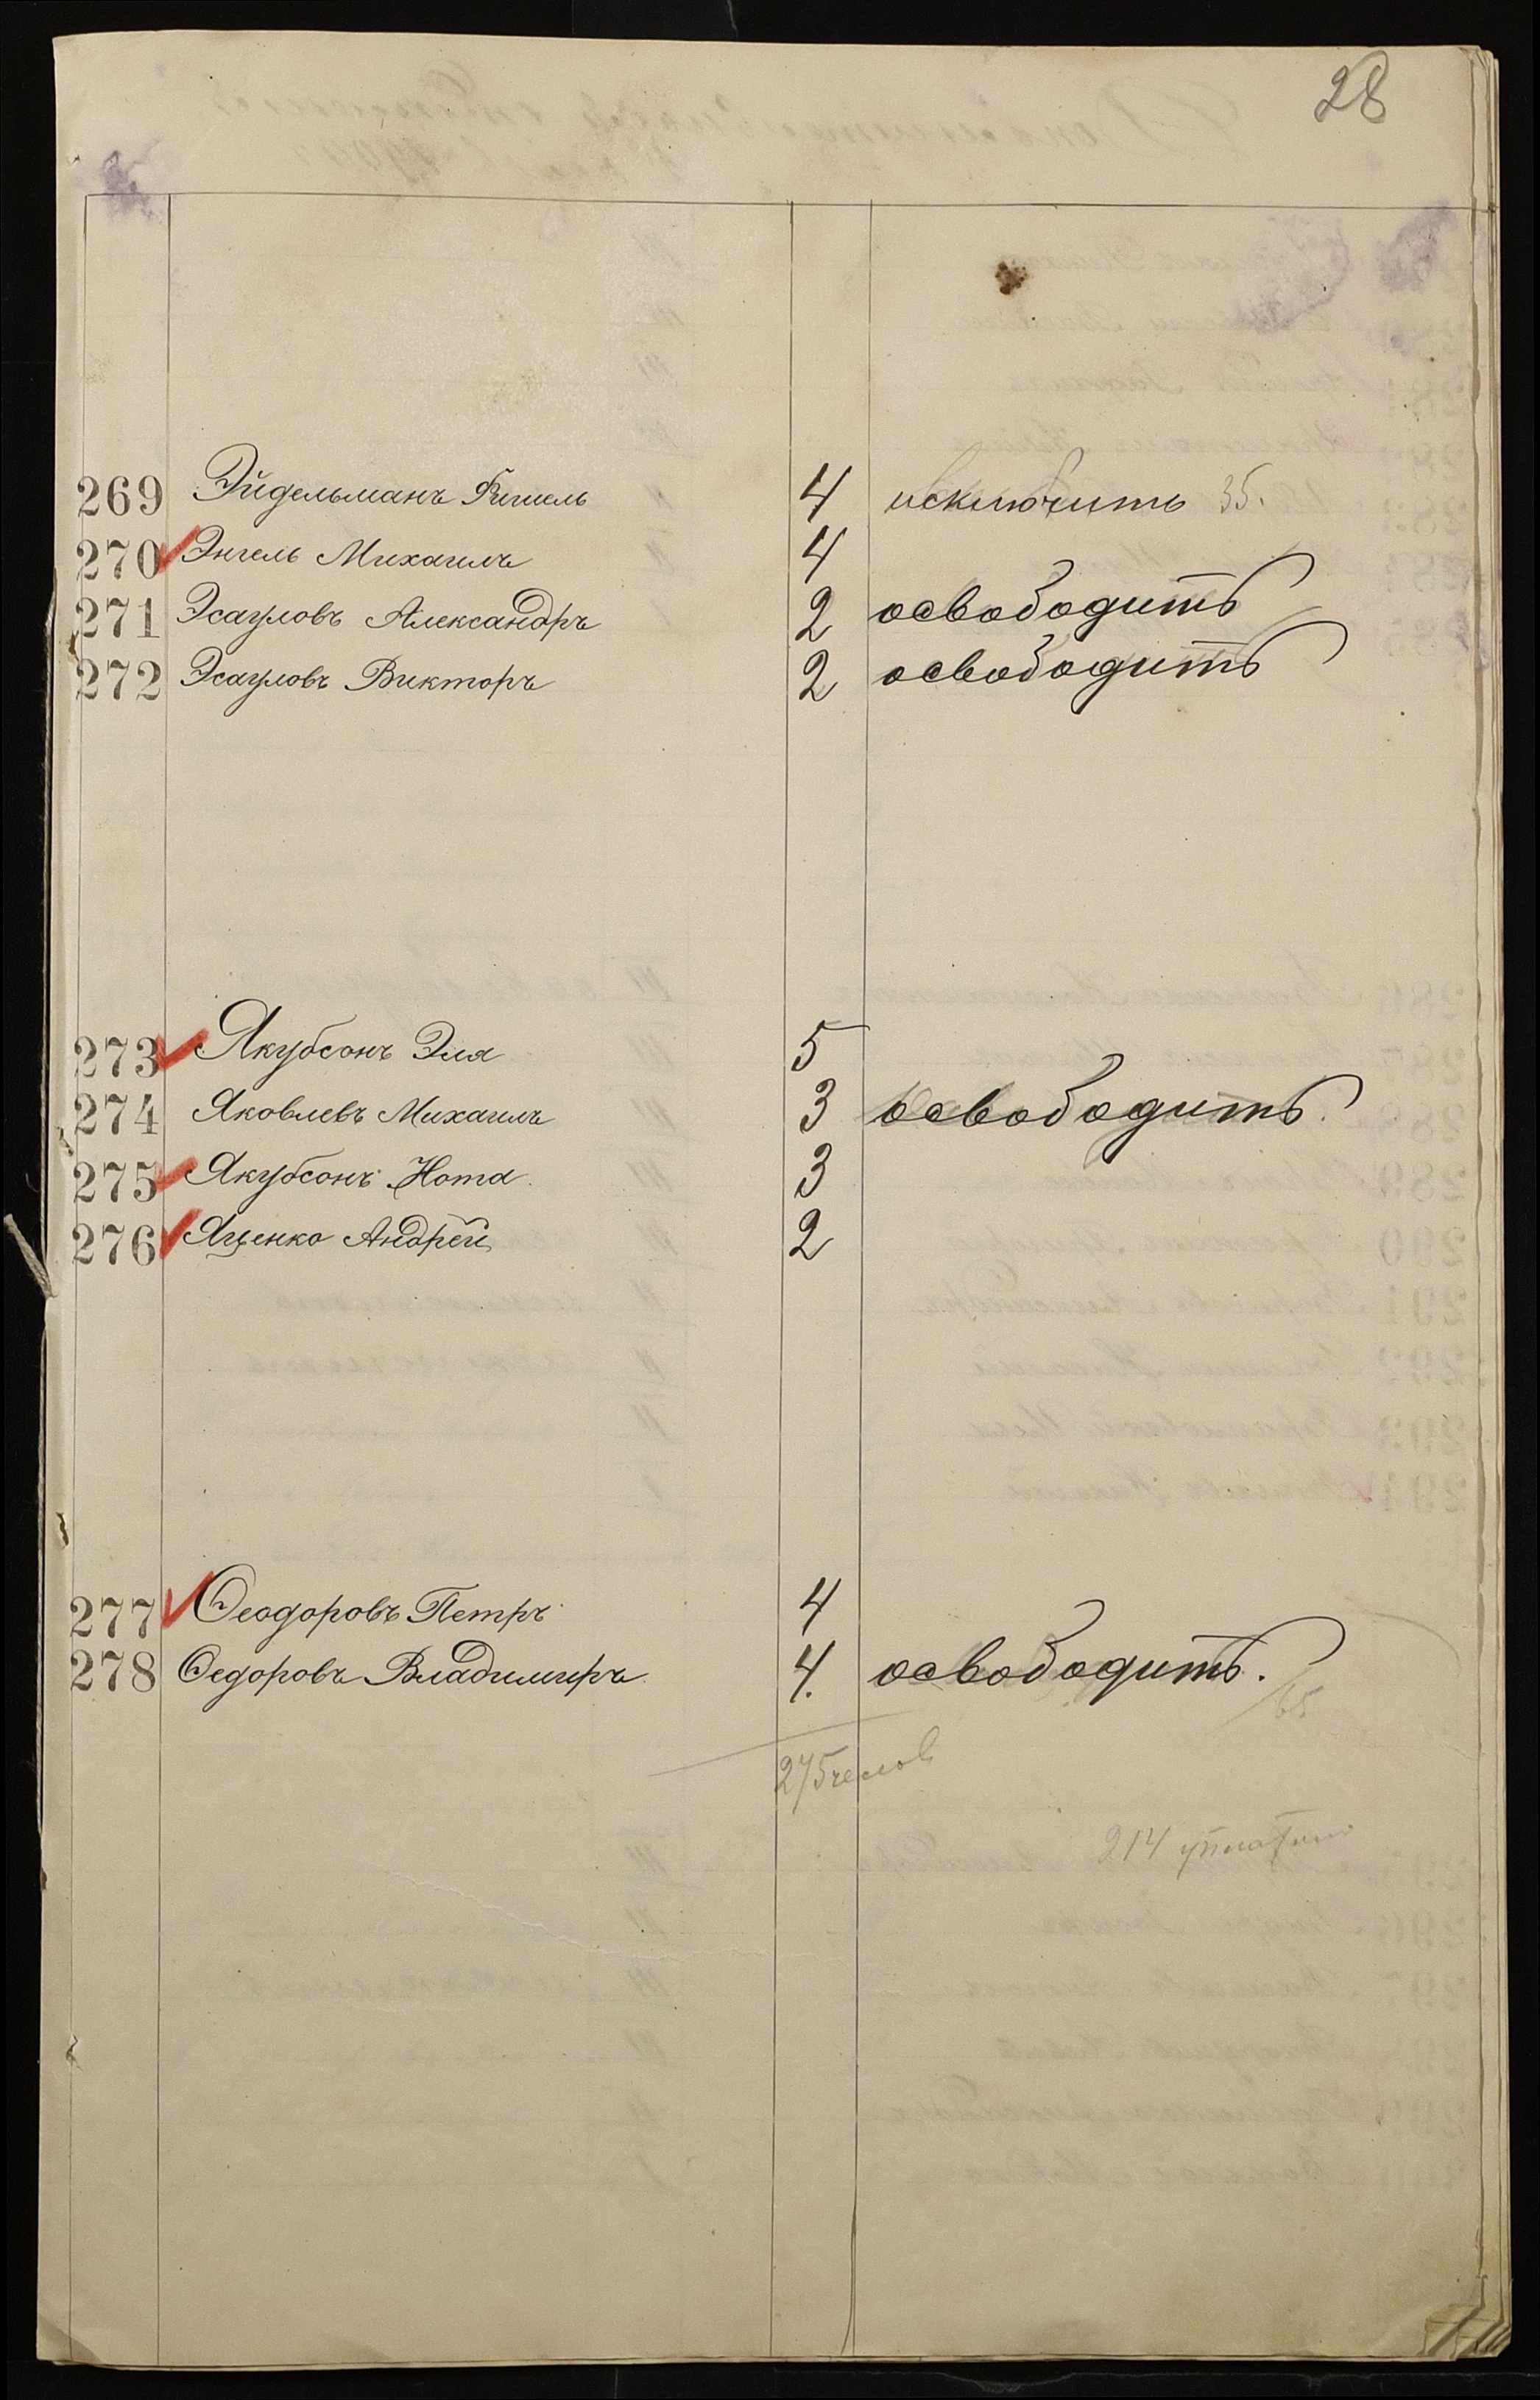 28
269 Эйдельманъ Фишель 4 исключить 35.
270 Энгель Михаилъ 4
271 Эсауловъ Александръ 2 освободить
272 Эсауловъ Викторъ 2 освободить
273 Якубсонъ Эля 5
274 Яковлевъ Михаилъ 3 освободить.
275 Якубсонъ Нота 3
276 Яценко Андрей 2
277 Ѳеодоровъ Петръ 4
278 Ѳедоровъ Владимиръ 4. освободить.
65
275 челов
214 уплатили